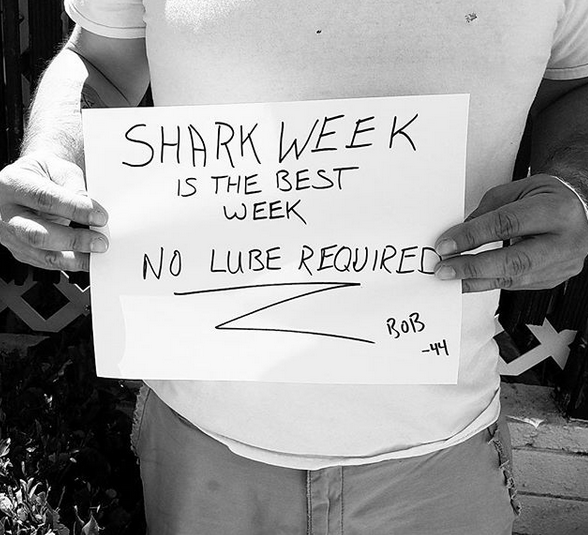 SHARK WEEK
IS THE BEST
WEEK
NO LUBE REQUIRED
BOB
-44